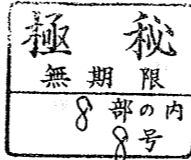 極秘
無期限
8部の内
8号